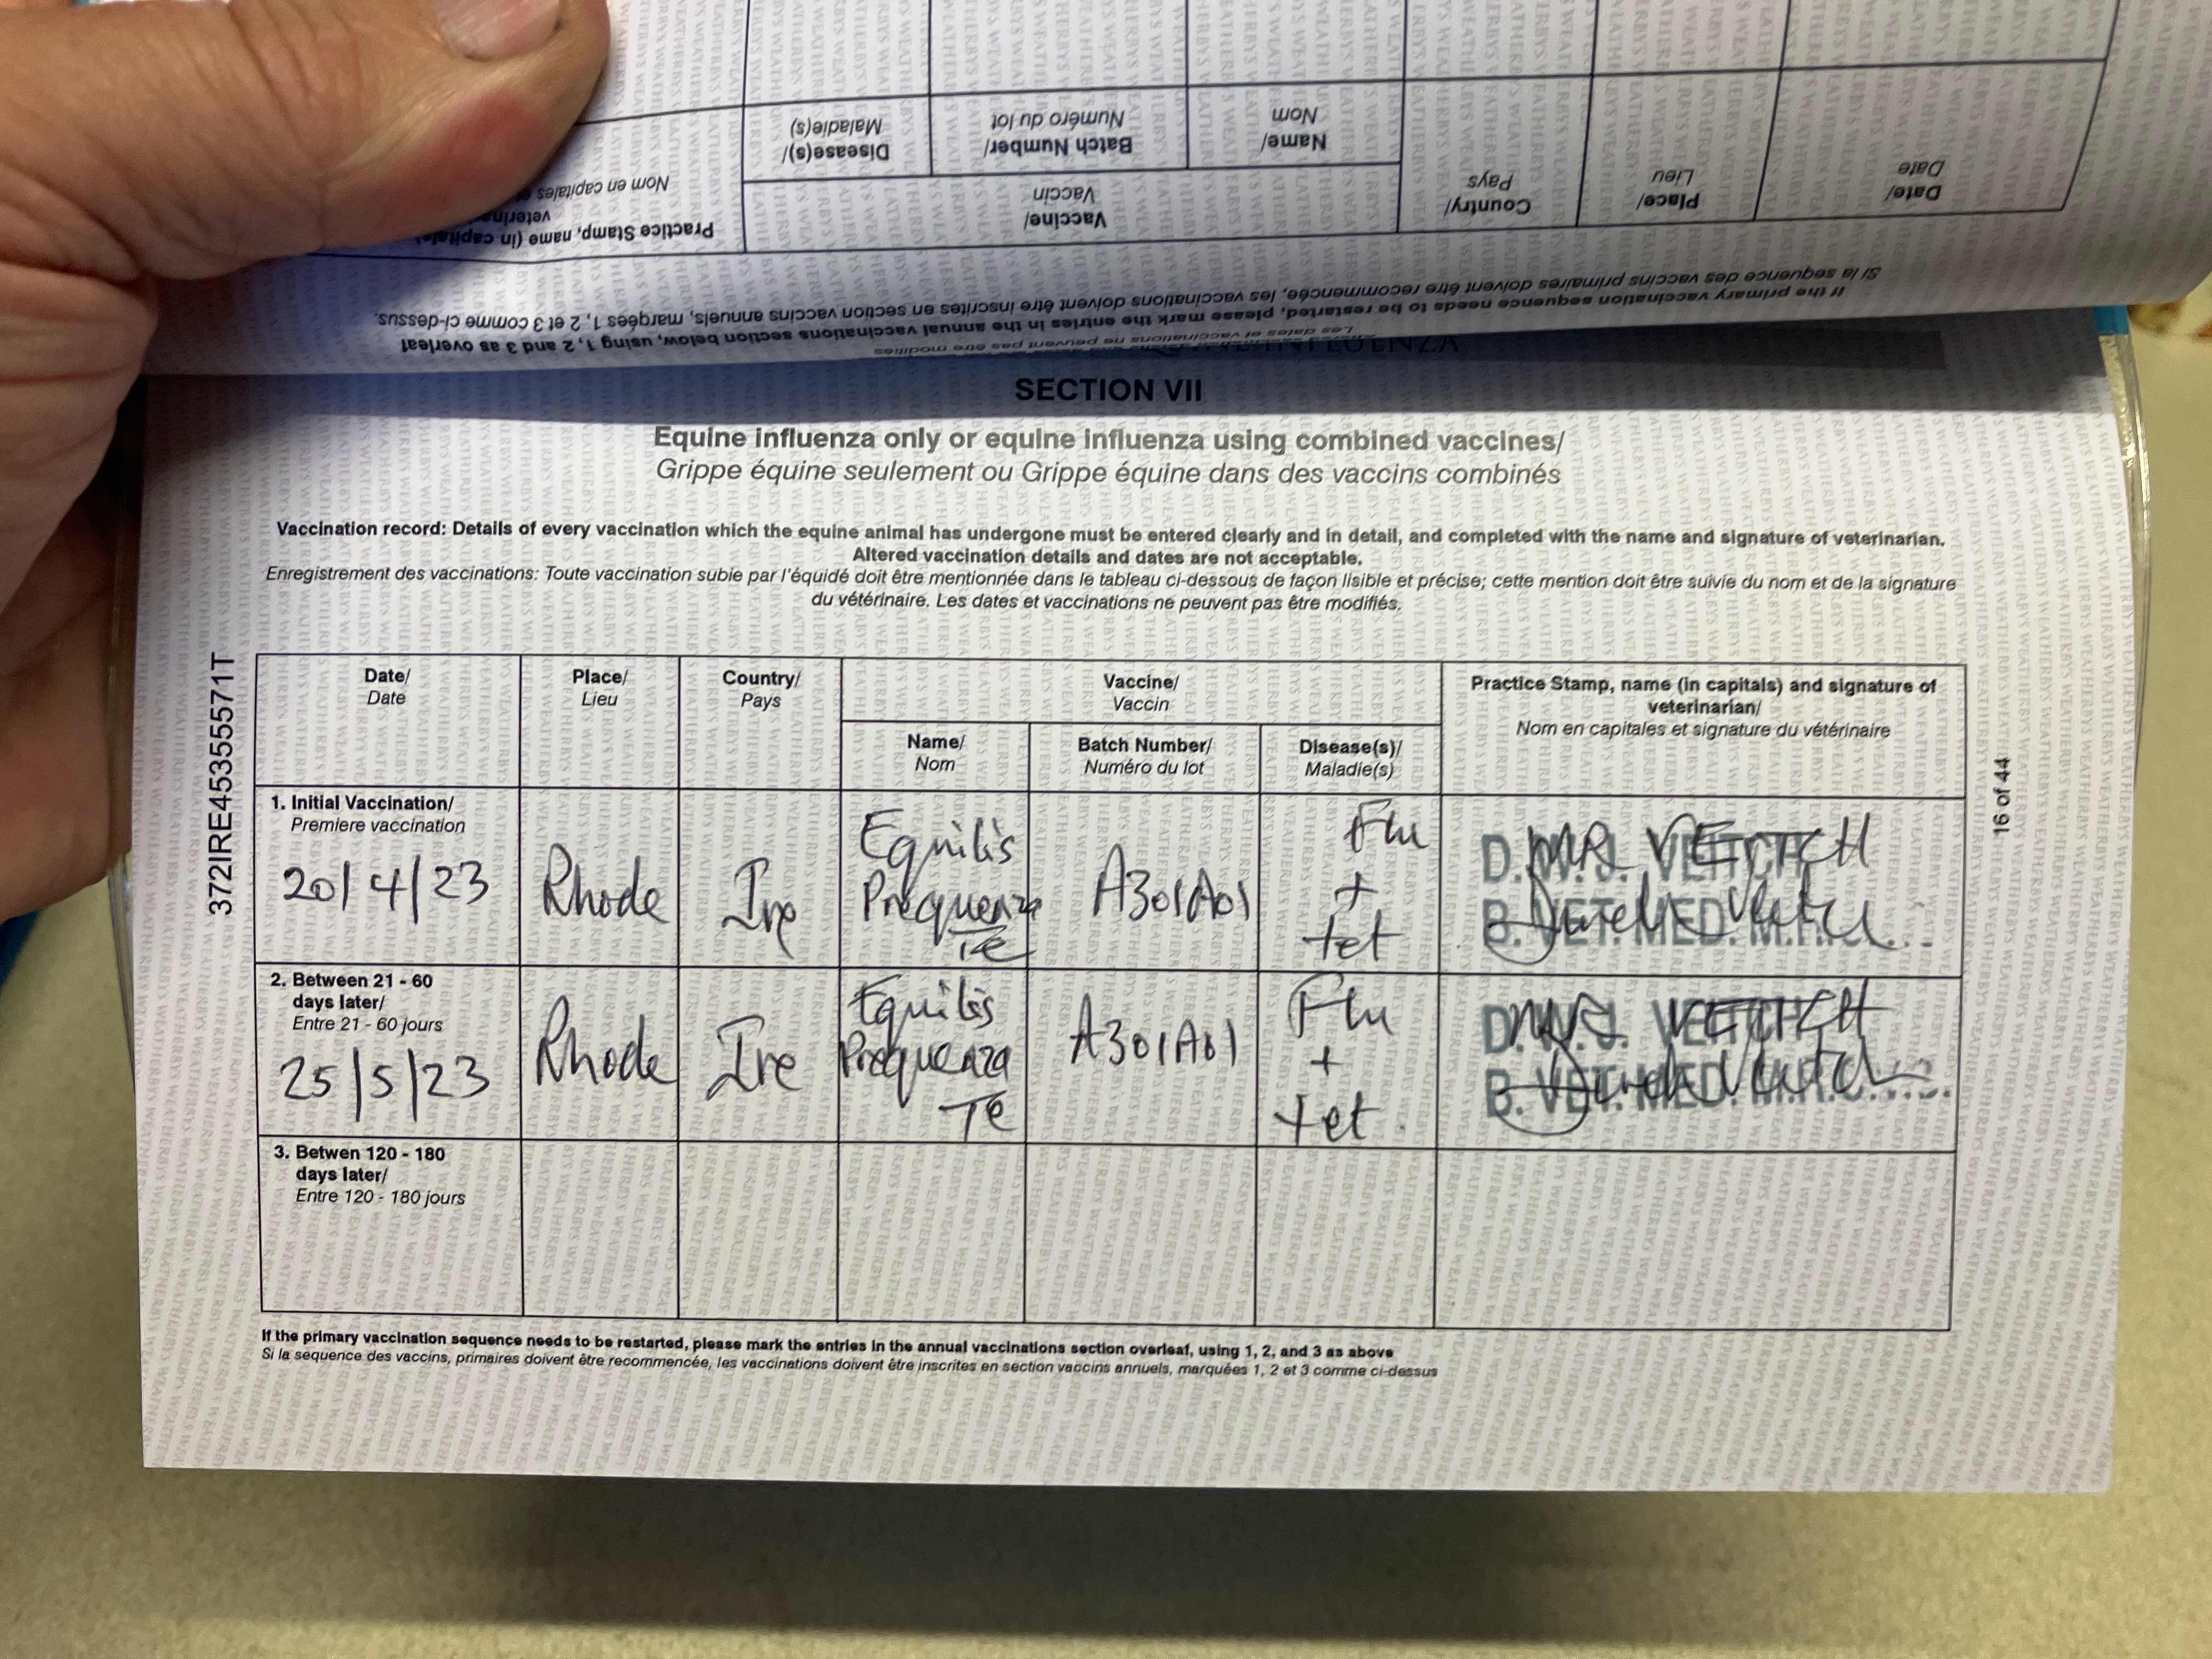 Date/
Date
Place/
Lieu
Country/
Pays
Vaccine/
Vaccin
Name/
Nom
Batch Number/
Numéro du lot
Disease(s)/
Maladie(s)
Practice Stamp, name (in
Nom en capitales
If the primary vaccination sequence needs to be restarted, please mark the entries in the annual vaccinations section below, using 1, 2 and 3 as above
Si la sequence des vaccins primaires doivent être recommencée, les vaccinations doivent être inscrites en section vaccins annuels, marquées 1, 2 et 3 comme ci-dessus.
SECTION VII
Equine influenza only or equine influenza using combined vaccines/
Grippe équine seulement ou Grippe équine dans des vaccins combinés
Vaccination record: Details of every vaccination which the equine animal has undergone must be entered clearly and in detail, and completed with the name and signature of veterinarian.
Altered vaccination details and dates are not acceptable.
Enregistrement des vaccinations: Toute vaccination subie par l'équidé doit être mentionnée dans le tableau ci-dessous de façon lisible et précise; cette mention doit être suivie du nom et de la signature
du vétérinaire. Les dates et vaccinations ne peuvent pas être modifiés.
372IRE45355571T
Date/
Date
Place/
Lieu
Country/
Pays
Vaccine/
Vaccin
Name/
Nom
Batch Number/
Numéro du lot
Disease(s)/
Maladie(s)
Practice Stamp, name (in capitals) and signature of
veterinarian/
Nom en capitales et signature du vétérinaire
1. Initial Vaccination/
Premiere vaccination
20/4/23
Rhode
Ire
Equilis
Prequenza
Te
A301A01
Flu
+
tet
D.W.S. VEITCH
B. VET. MED.
MR VEITCH
2. Between 21 - 60
days later/
Entre 21 - 60 jours
25/5/23
Rhode
Ire
Equilis
Prequenza
Te
A301A01
Flu
+
tet.
D.W.S. VEITCH
B. VET. MED.
MR VEITCH
3. Betwen 120 - 180
days later/
Entre 120 - 180 jours
16 of 44
If the primary vaccination sequence needs to be restarted, please mark the entries in the annual vaccinations section overleaf, using 1, 2, and 3 as above
Si la sequence des vaccins, primaires doivent être recommencée, les vaccinations doivent être inscrites en section vaccins annuels, marquées 1, 2 et 3 comme ci-dessus